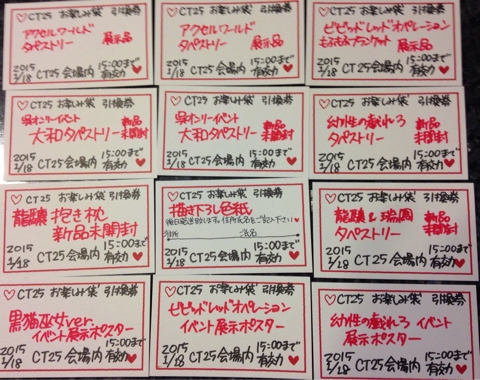 ♡CT25 お楽しみ袋 引換券
アクセルワールド
タペストリー 展示品
2015 15:00まで
1/18 CT25会場内 有効♥
♡CT25 お楽しみ袋 引換券
アクセルワールド
タペストリー 展示品
2015 15:00まで
1/18 CT25会場内 有効♥
♡CT25 お楽しみ袋 引換券
ビビッドレッドオペレーション
もふもふブランケット 展示品
2015 15:00まで
1/18 CT25会場内 有効♥
♡CT25 お楽しみ袋 引換券
呉オンリーイベント 新品
大和タペストリー 未開封
2015 15:00まで
1/18 CT25会場内 有効♥
♡CT25 お楽しみ袋 引換券
呉オンリーイベント 新品
大和タペストリー 未開封
2015 15:00まで
1/18 CT25会場内 有効♥
♡CT25 お楽しみ袋 引換券
幼性の戯れろ 新品
タペストリー 未開封
2015 15:00まで
1/18 CT25会場内 有効♥
♡CT25 お楽しみ袋 引換券
龍驤 抱き枕
新品未開封
2015 15:00まで
1/18 CT25会場内 有効♥
♡CT25 お楽しみ袋 引換券
描き下ろし色紙
後日発送致します。住所氏名をご記入下さい♥
住所 氏名
2015 15:00まで
1/18 CT25会場内 有効♥
♡CT25 お楽しみ袋 引換券
龍驤&瑞鳳 新品
タペストリー 未開封
2015 15:00まで
1/18 CT25会場内 有効♥
♡CT25 お楽しみ袋 引換券
黒猫巫女ver
イベント展示ポスター
2015 15:00まで
1/18 CT25会場内 有効♥
♡CT25 お楽しみ袋 引換券
ビビッドレッドオペレーション
イベント展示ポスター
2015 15:00まで
1/18 CT25会場内 有効♥
♡CT25 お楽しみ袋 引換券
幼性の戯れろ イベント
展示ポスター
2015 15:00まで
1/18 CT25会場内 有効♥